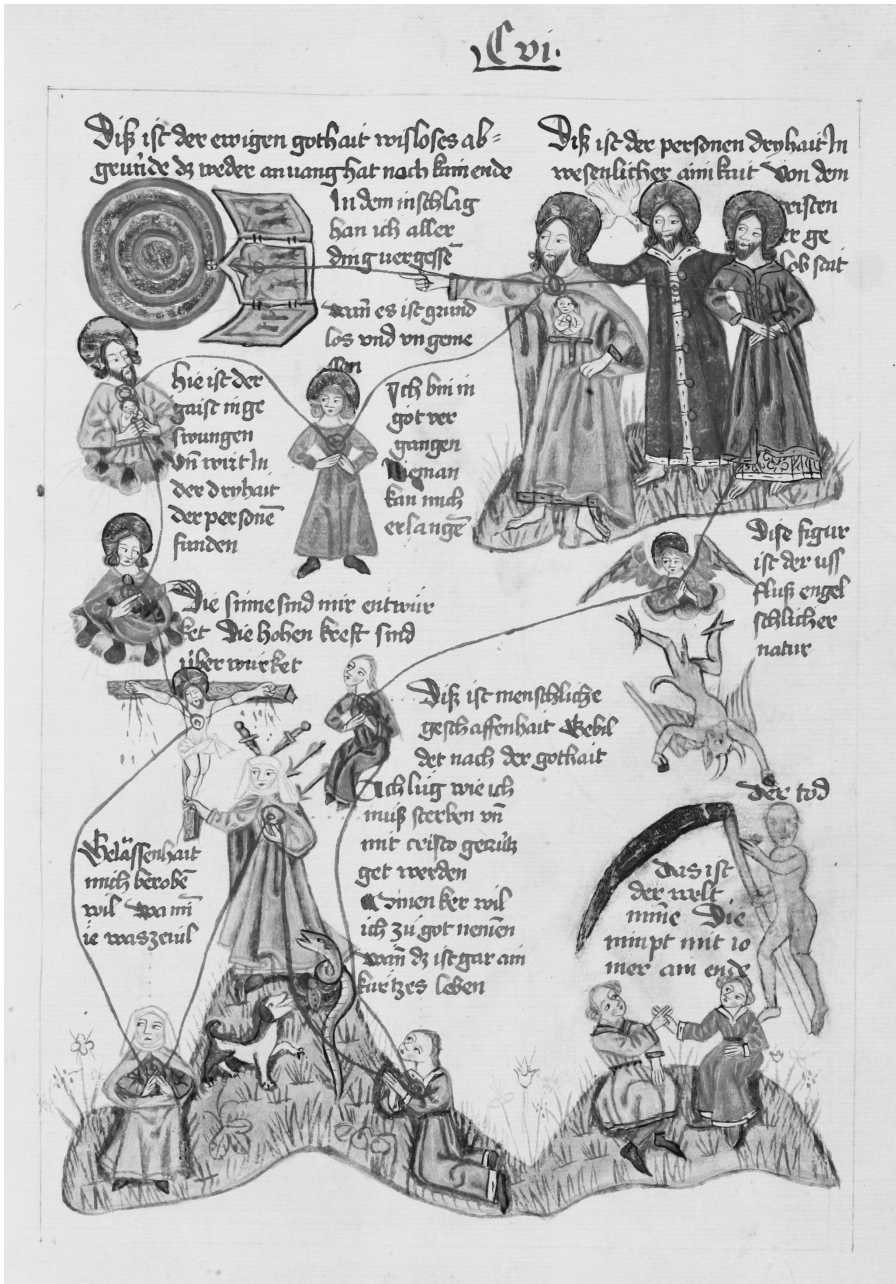 Cvi.
Diß ist der ewigen gothait wisloses ab=
grunde dz weder anuang hat noch kain ende
In dem inschlag
han ich aller
ding vergessē
wan̄ es ist grund
los vnd vn geme
ssen
Diß ist der personen dryhait In
wesenlicher ainikait Von dem
cristen
er ge
lob sait
Hie ist der
gaist in ge
swungen
vn̄ wirt In
der dryhait
der personē
funden
Ich bin in
got ver
gangen
Nieman
kan mich
erlangē
Dise figur
ist der uss
fluß engel
schlicher
natur
Die sinne sind mir entwür
ket Die hohen kreft sind
über würket
Diß ist menschliche
geschaffenhait Gebil
det nach der gothait
Ich lug wie ich
muß sterben vn̄
mit cristo gecrütz
get werden
Minen ker wil
ich zu got nemen
wan̄ dz ist gar ain
kurtzes leben
Gelässenhait
mich beroben
wil
ie was ze uil
der tod
Das ist
der welt
minne Die
nimpt mit io
mer ain ende